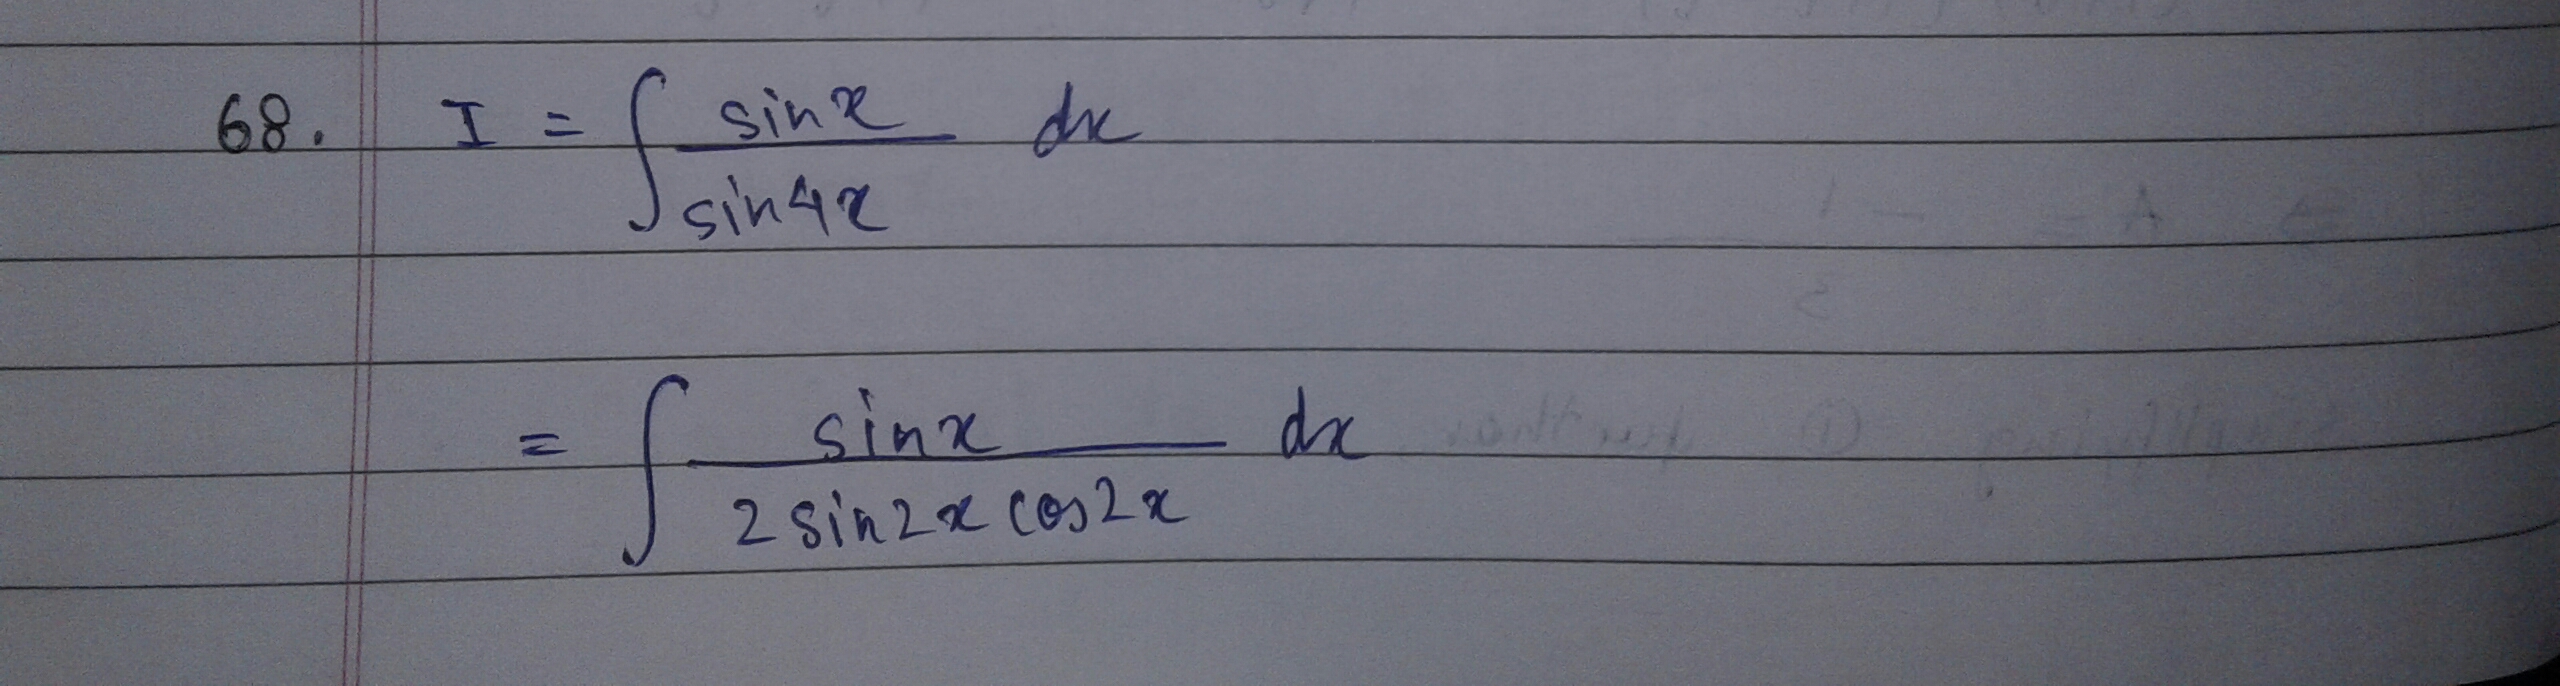 68. I = ∫ sinx / sin4x dx
= ∫ sinx / 2 sin2x cos2x dx